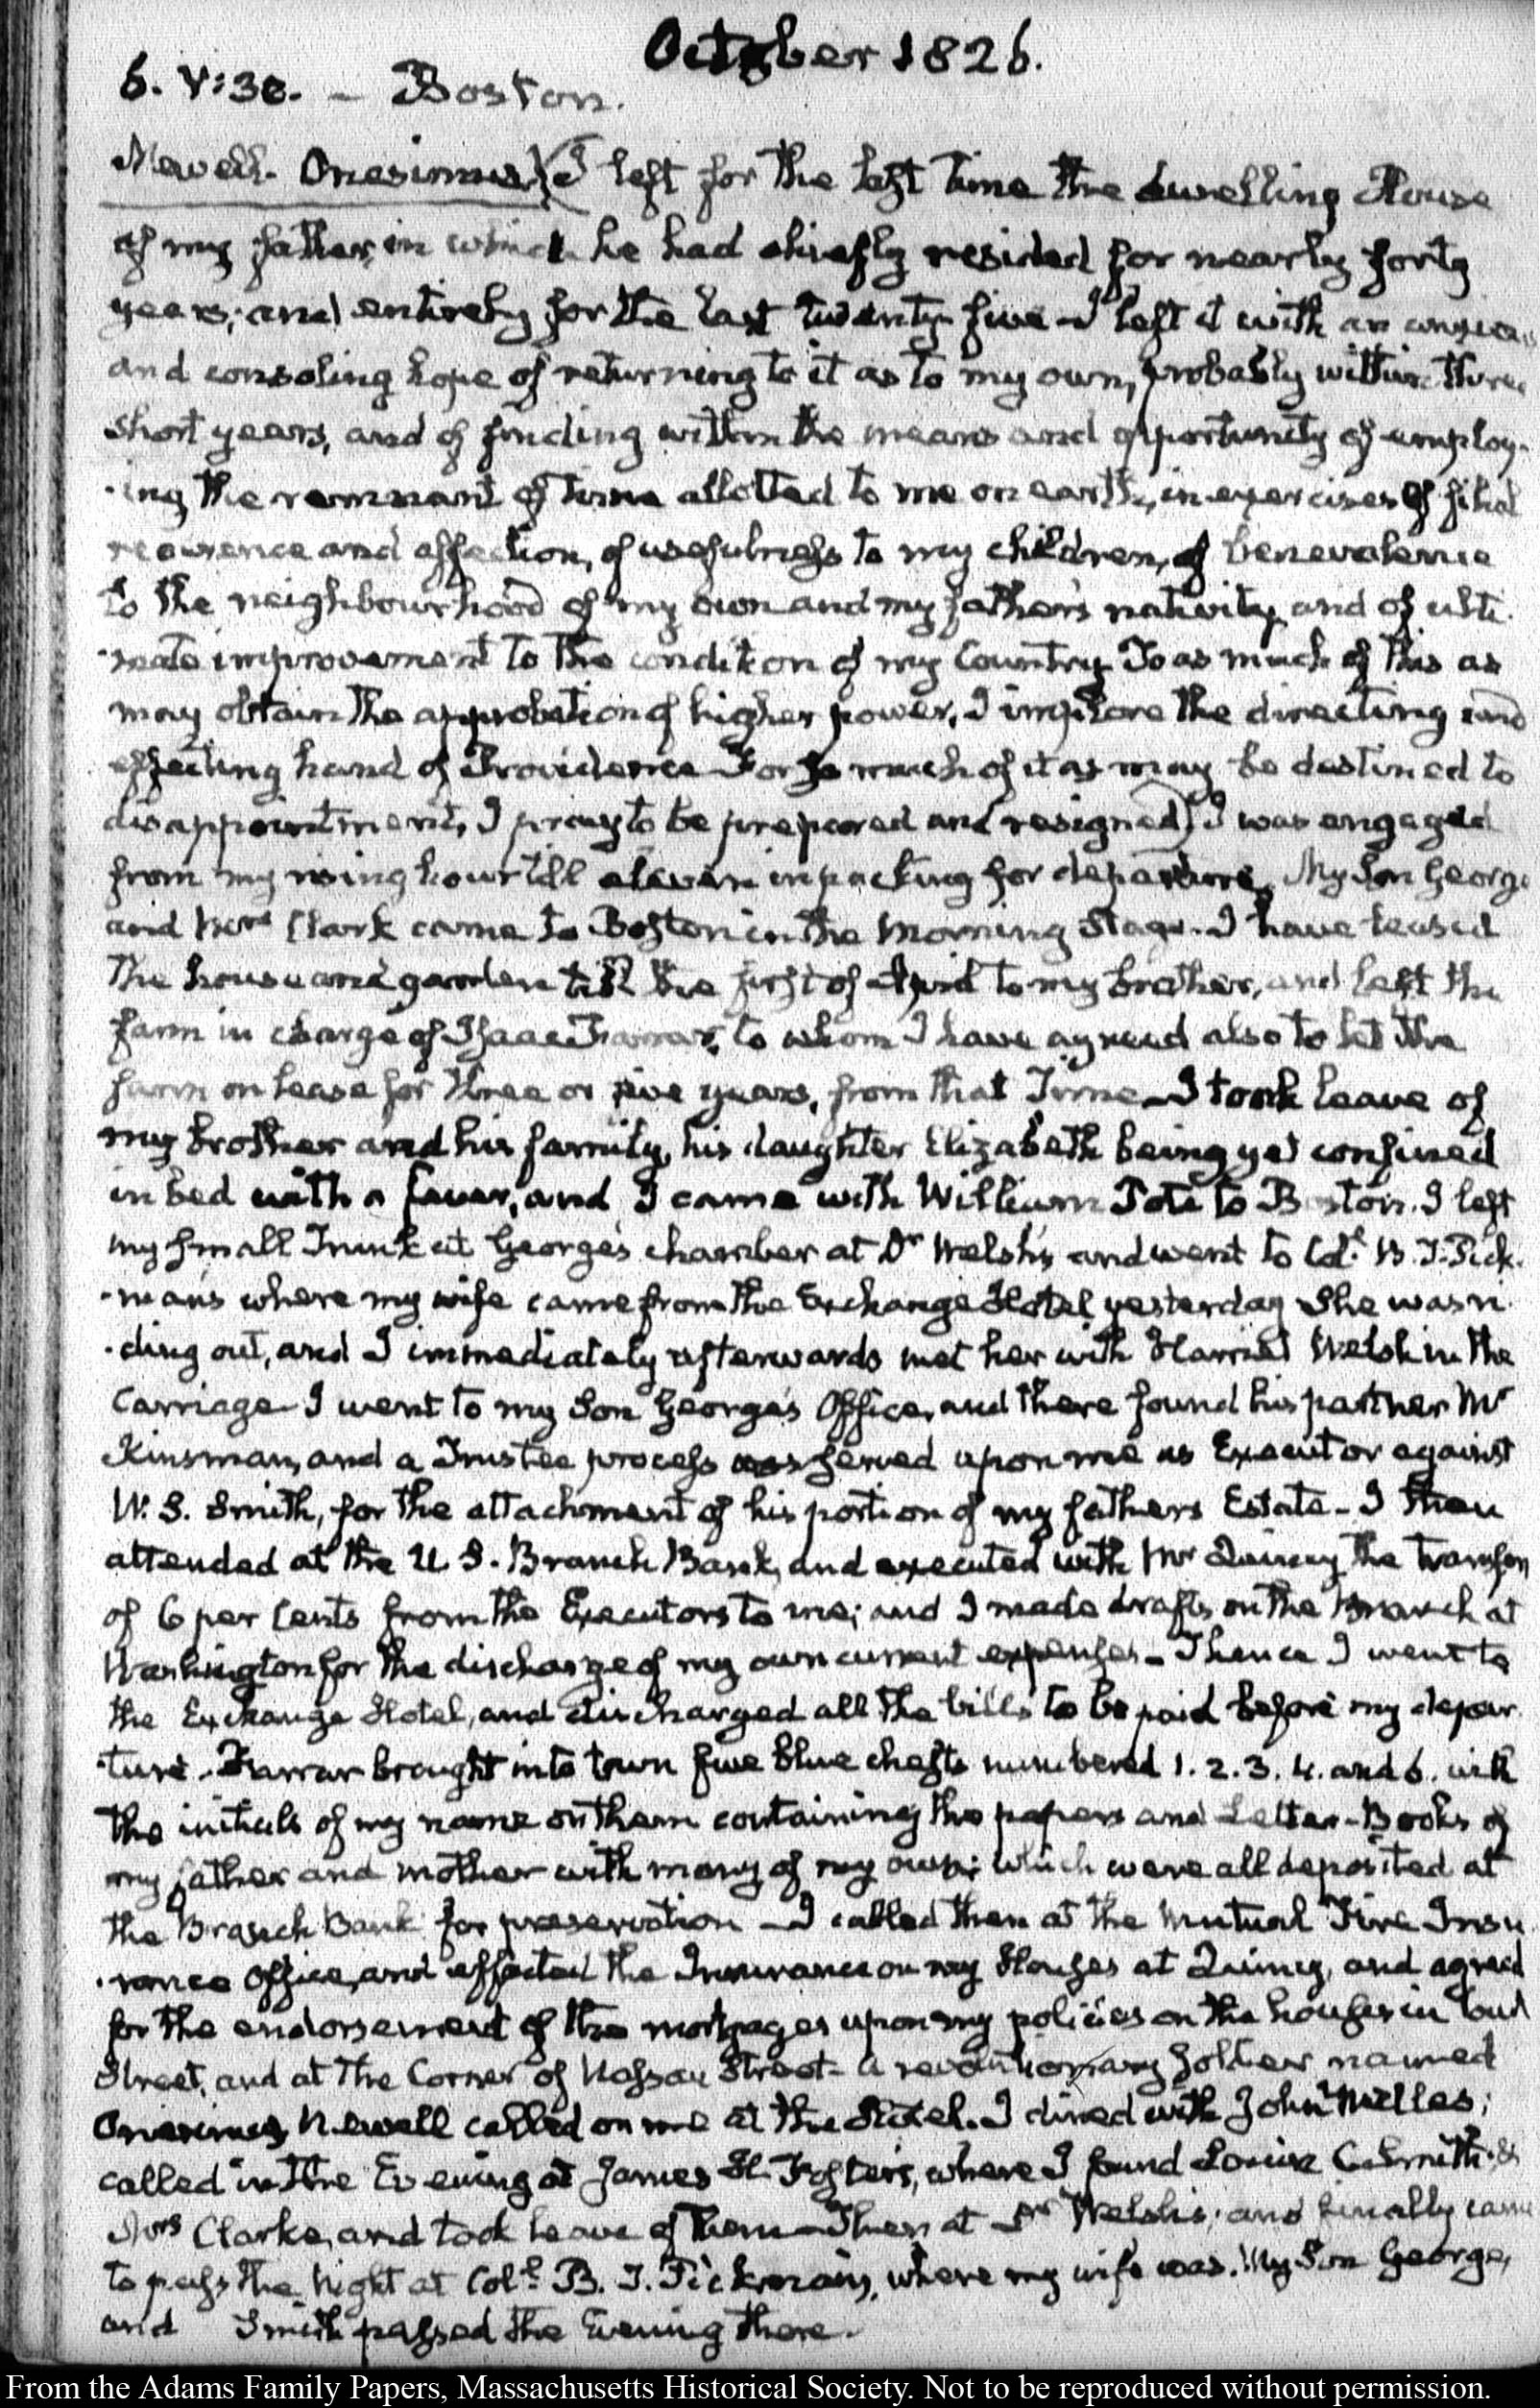 October 1826.
6. V:30. – Boston.
Newell. Onesimus. I left for the last time the dwelling House
of my father, in which he had chiefly resided for nearly forty
years; and entirely for the last twenty five – I left it with an anxious
and consoling hope of returning to it as to my own, probably within three
short years, and of finding within the means and opportunity of employ-
-ing the remnant of time allotted to me on earth, in exercises of filial
reverence and affection, of usefulness to my children, of benevolence
to the neighbourhood of my own and my father's nativity, and of ulti-
-mate improvement to the condition of my Country. To as much of this as
may obtain the approbation of higher power, I implore the directing and
effecting hand of Providence – For so much of it as may be destined to
disappointment, I pray to be prepared and resigned) I was engaged
from my rising hour till eleven in packing for departure. My Son George
and Mrs Clark came to Boston in the Morning Stage. I have leased
the house and garden till the first of April to my brother, and left the
farm in charge of Isaac Farrar, to whom I have agreed also to let the
farm on lease for three or five years, from that Time – I took leave of
my brother and his family, his daughter Elizabeth being yet confined
in bed with a fever, and I came with William to Boston. I left
my small Trunk at George's chamber at Dr Welsh's and went to Col. B. T. Pick-
-man's where my wife came from the Exchange Hotel yesterday She was ri-
-ding out, and I immediately afterwards met her with Harriet Welsh in the
Carriage – I went to my Son George's Office, and there found his partner Mr
Kinsman, and a Trustee process was served upon me as Executor against
W. S. Smith, for the attachment of his portion of my fathers Estate – I then
attended at the U. S. Branch Bank, and executed with Mr Quincy the transfer
of 6 per Cents from the Executors to me; and I made drafts on the Branch at
Washington for the discharge of my own current expenses – Thence I went to
the Exchange Hotel, and discharged all the bills to be paid before my depar-
-ture. Farrar brought into town five blue chests numbered 1. 2. 3. 4. and 6. with
the initials of my name on them containing the papers and Letter-Books of
my father and mother with many of my own; which were all deposited at
the Branch Bank for preservation – I called then at the Mutual Fire Insu-
-rance Office, and effected the Insurance on my Houses at Quincy, and agreed
for the endorsement of the mortgages upon my policies on the houses in Court
Street, and at the Corner of Nassau Street – A revolutionary Soldier named
Onesimus Newell called on me at the Hotel. I dined with John Welles;
called in the Evening at James H. Foster's, where I found Louisa C. Smith &
Mrs Clarke, and took leave of them – Then at Dr Welsh's; and finally came
to pass the Night at Col. B. T. Pickman's, where my wife was. My Son George,
and Smith passed the Evening there.
From the Adams Family Papers, Massachusetts Historical Society. Not to be reproduced without permission.